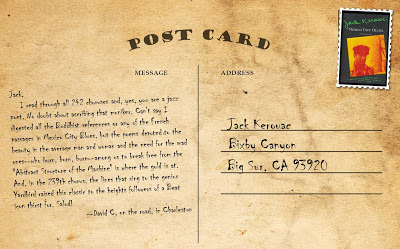 POST CARD
MESSAGE
Jack,
I read through all 242 choruses and, yes, you are a jazz
poet. No doubt about ascribing that moniker. Can't say I
digested all the Buddhist references or any of the French
passages in Mexico City Blues, but the poems devoted to the
beauty in the average man and woman and the need for the mad
ones—who burn, burn, burn—among us to break free from the
"Abstract Structure of the Machine" is where the gold is at.
And, in the 239th chorus, the lines that sing to the genius
Yardbird raised this classic to the heights followers of a Beat
icon thirst for. Salud!
—David C, on the road, in Charleston
ADDRESS
Jack Kerouac
Bixby Canyon
Big Sur, CA 93920
Jack Kerouac
Mexico City Blues